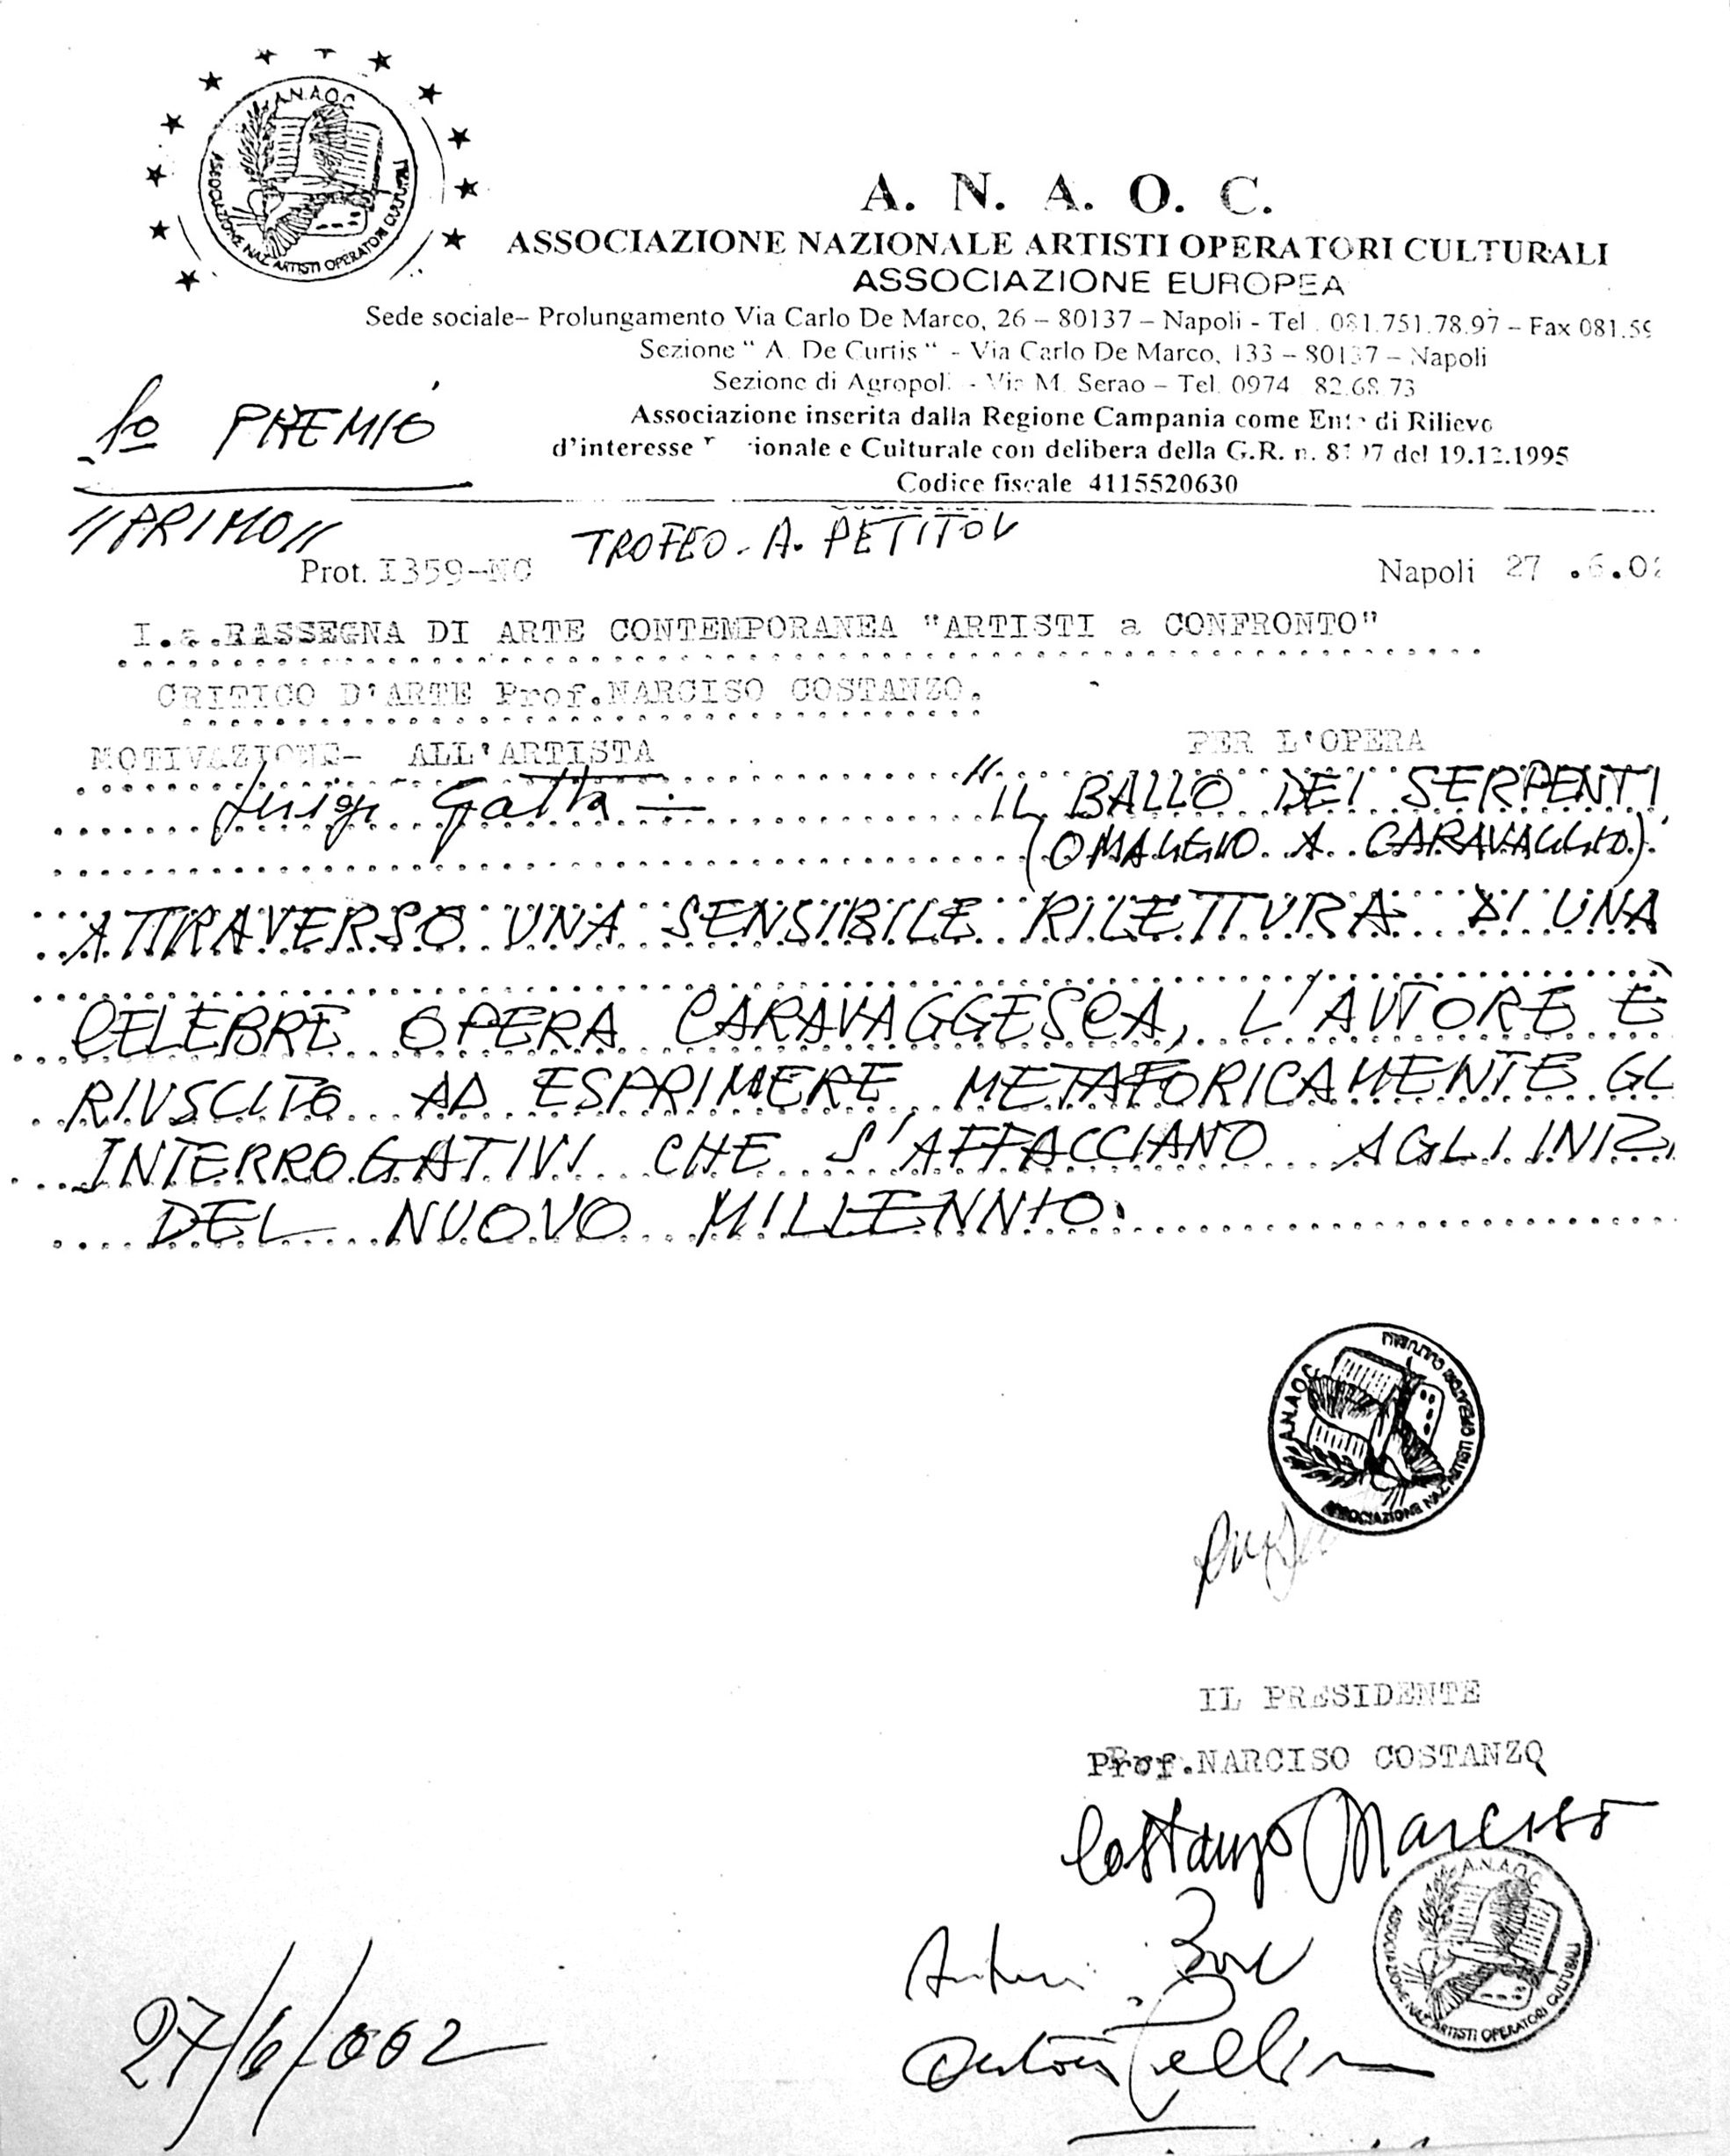 A.N.A.O.C.
ASSOCIAZIONE NAZ. ARTISTI OPERATORI CULTURALI
A. N. A. O. C.
ASSOCIAZIONE NAZIONALE ARTISTI OPERATORI CULTURALI
ASSOCIAZIONE EUROPEA
Sede sociale– Prolungamento Via Carlo De Marco, 26 – 80137 – Napoli - Tel . 081.751.78.97 – Fax 081.59
Sezione “ A. De Curtis “ - Via Carlo De Marco, 133 – 80137 – Napoli
Sezione di Agropoli - Via M. Serao – Tel. 0974 82.68.73
Associazione inserita dalla Regione Campania come Ente di Rilievo
d’interesse ionale e Culturale con delibera della G.R. n. del 19.12.1995
Codice fiscale 4115520630
1o PREMIO
//PRIMO//
TROFEO - A. PETITO
Prot. I359-NC
Napoli 27 .6.02
I.a.RASSEGNA DI ARTE CONTEMPORANEA "ARTISTI a CONFRONTO"
CRITICO D'ARTE Prof.NARCISO COSTANZO.
MOTIVAZIONE- ALL'ARTISTA PER L'OPERA
Luigi Gatta "IL BALLO DEI SERPENTI
(OMAGGIO A CARAVAGGIO)."
ATTRAVERSO UNA SENSIBILE RILETTURA DI UNA
CELEBRE OPERA CARAVAGGESCA, L'AUTORE È
RIUSCITO AD ESPRIMERE METAFORICAMENTE GL
INTERROGATIVI CHE S'AFFACCIANO AGLI INIZ
DEL NUOVO MILLENNIO.
A.N.A.O.C.
ASSOCIAZIONE NAZ. ARTISTI OPERATORI CULTURALI
IL PRESIDENTE
Prof.NARCISO COSTANZO
Costanzo Narciso
A.N.A.O.C.
ASSOCIAZIONE NAZ. ARTISTI OPERATORI CULTURALI
27/6/002